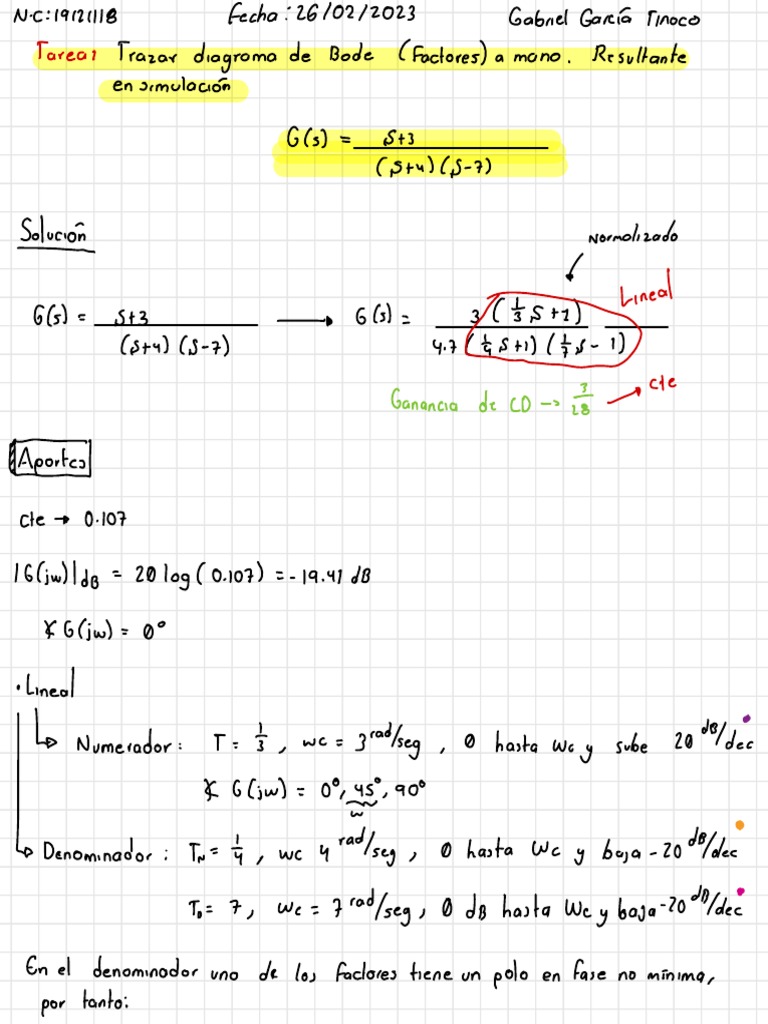 N.C:19121118 Fecha: 26/02/2023 Gabriel García Tinoco
Tarea: Trazar diagrama de Bode (Factores) a mano. Resultante
en simulación
G(s) = s+3 / (s+4)(s-7)
Solución
Normalizado
G(s) = s+3 / (s+4)(s-7) → G(s) = 3(1/3 s+1) / 4.7(1/4 s+1)(1/7 s-1) Lineal
Ganancia de CD → 3/28 → cte
Aportes
cte → 0.107
|G(jw)|dB = 20 log(0.107) = -19.41 dB
∡G(jw) = 0°
· Lineal
Numerador: T = 1/3, wc = 3 rad/seg, 0 hasta wc y sube 20 dB/dec
∡G(jw) = 0°, 45°, 90°
w
Denominador: TN = 1/4, wc 4 rad/seg, 0 hasta wc y baja -20 dB/dec
TD = 7, wc = 7 rad/seg, 0 dB hasta wc y baja -20 dB/dec
En el denominador uno de los factores tiene un polo en fase no mínima,
por tanto: